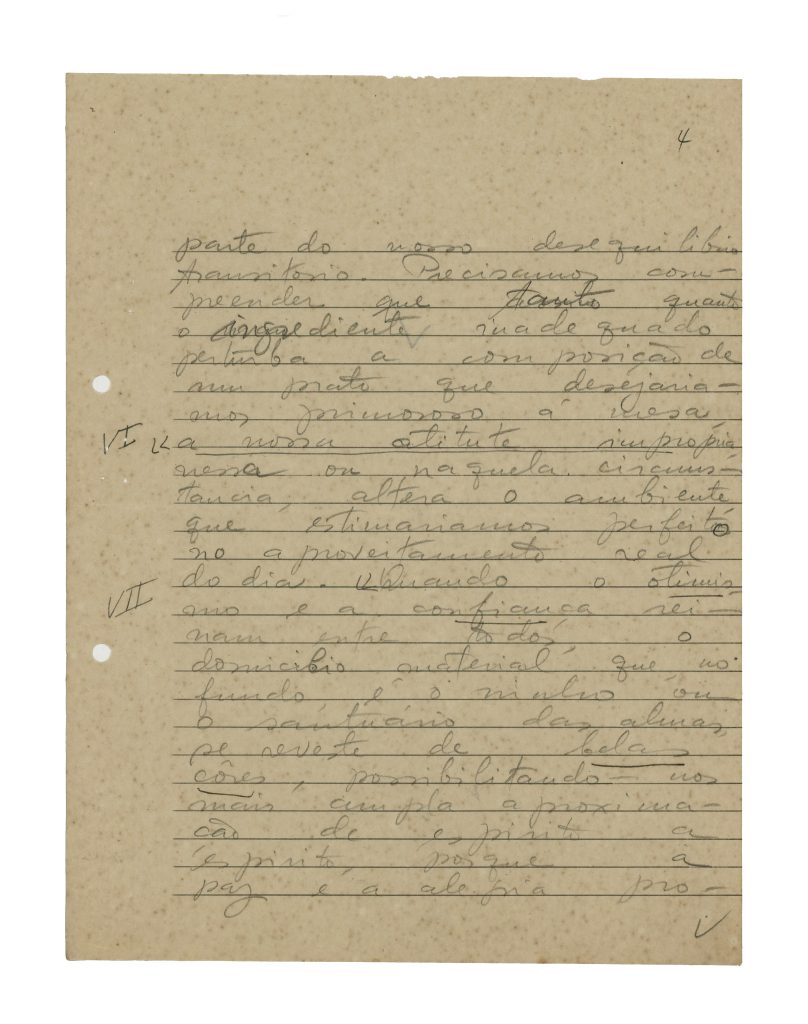 4
parte do nosso desequilibrio
transitorio. Precisamos com-
preender que tanto quanto
o ingrediente inadequado
perturba a composição de
um prato que desejaria-
mos primoroso á mesa,
VI a nossa atitute impropria
nessa ou naquela circuns-
tancia, altera o ambiente
que estimariamos perfeito
no aproveitamento real
do dia. Quando o otimis
VII mo e a confiança rei-
nam entre todos, o
domicilio material que no
fundo é o ninho ou
o santuário das almas,
se reveste de belas
côres, possibilitando-nos
mais ampla aproxima-
cão de espirito a
espirito, porque a
paz e a alegria pro-